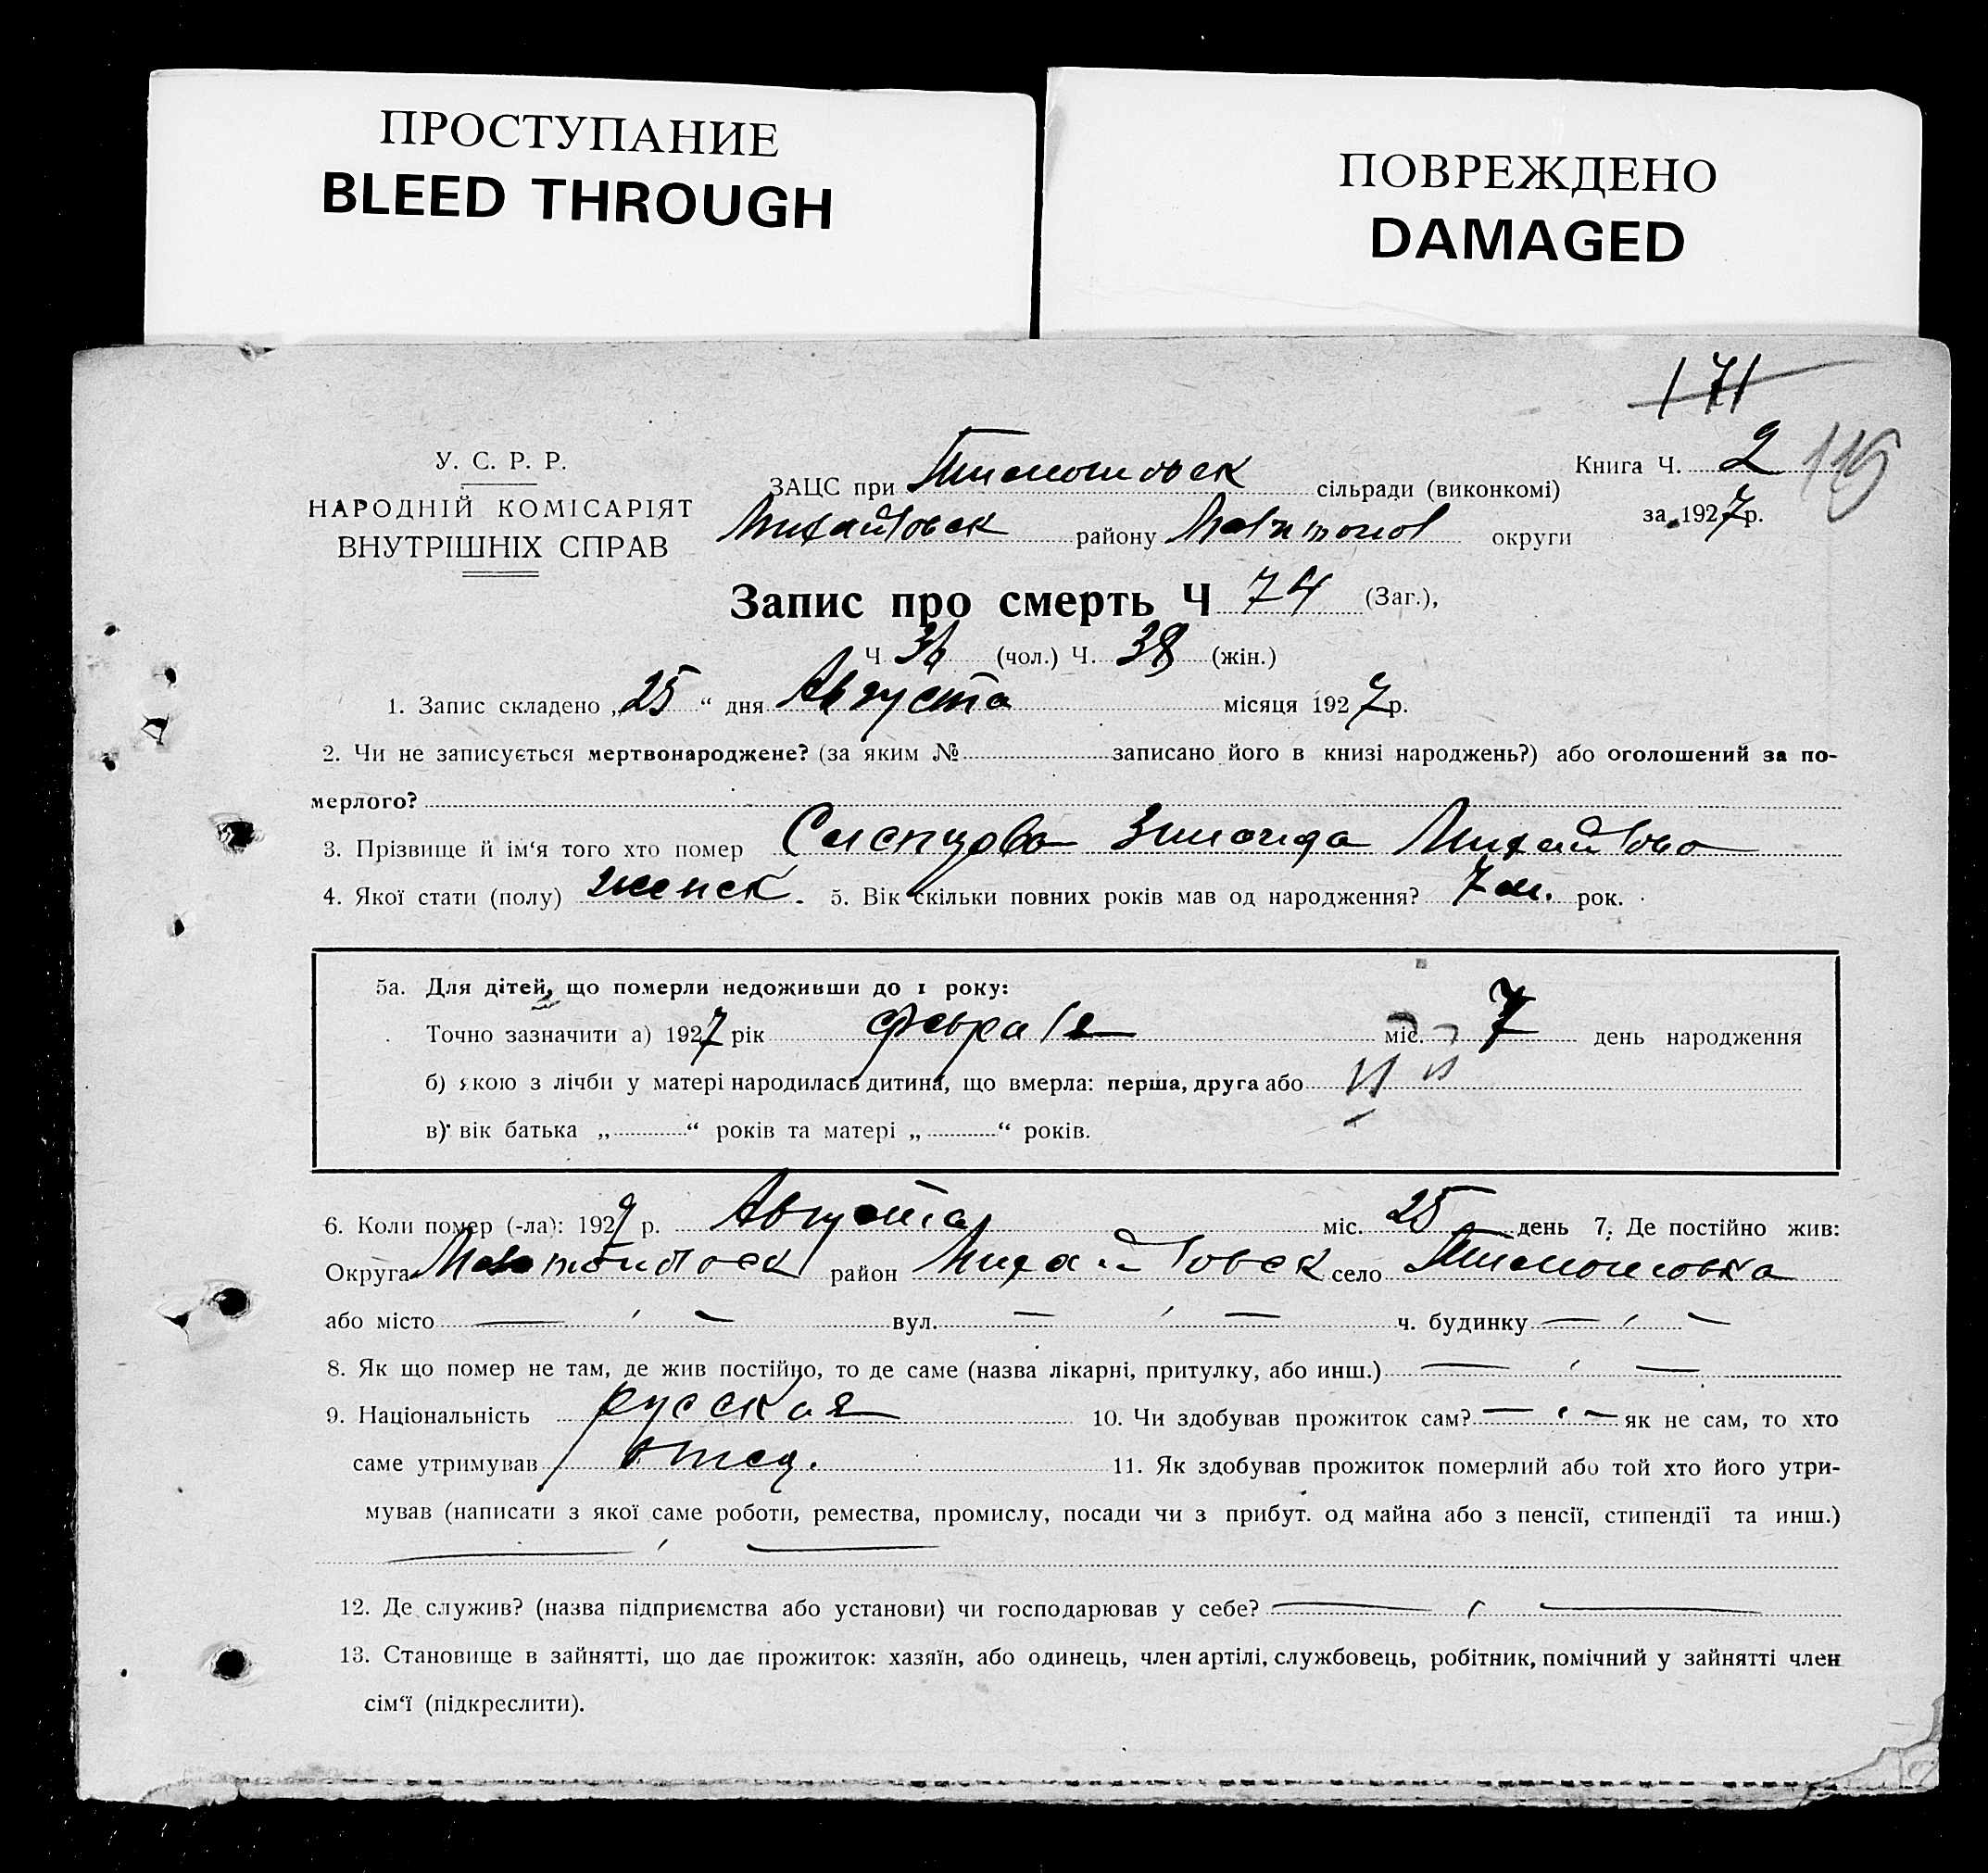 ПРОСТУПАНИЕ
BLEED THROUGH
ПОВРЕЖДЕНО
DAMAGED
171
У. С. Р. Р.
НАРОДНІЙ КОМІСАРІЯТ
ВНУТРІШНІХ СПРАВ
ЗАЦС при Тимошовск сільради (виконкомі)
Михайловск району Мелитопол округи
Книга Ч. 2 115
за 1927 р.
Запис про смерть Ч 74 (Заг.),
Ч 36 (чол.) Ч. 38 (жін.)
1. Запис складено „25“ дня Августа місяця 1927 р.
2. Чи не записується мертвонароджене? (за яким № записано його в книзі народжень?) або оголошений за по-
мерлого?
3. Прізвище й ім‘я того хто помер Слепцова Зинаида Михайловна
4. Якої стати (полу) женск. 5. Вік скільки повних років мав од народження? 7 м. рок.
5а. Для дітей, що померли недоживши до 1 року:
Точно зазначити а) 1927 рік февраля міс. 7 день народження
б) якою з лічби у матері народилась дитина, що вмерла: перша, друга або
в) вік батька „ “ років та матері „ “ років.
6. Коли помер (-ла): 1927 р. Августа міс. 25 день 7. Де постійно жив:
Округа Мелитопольск район Михайловск село Тимошовка
або місто — вул. — ч. будинку —
8. Як що помер не там, де жив постійно, то де саме (назва лікарні, притулку, або инш.) —
9. Національність русская 10. Чи здобував прожиток сам? — як не сам, то хто
саме утримував отец. 11. Як здобував прожиток померлий або той хто його утри-
мував (написати з якої саме роботи, ремества, промислу, посади чи з прибут. од майна або з пенсії, стипендії та инш.)
12. Де служив? (назва підприємства або установи) чи господарював у себе? —
13. Становище в зайнятті, що дає прожиток: хазяїн, або одинець, член артілі, службовець, робітник, помічний у зайнятті член
сім‘ї (підкреслити).